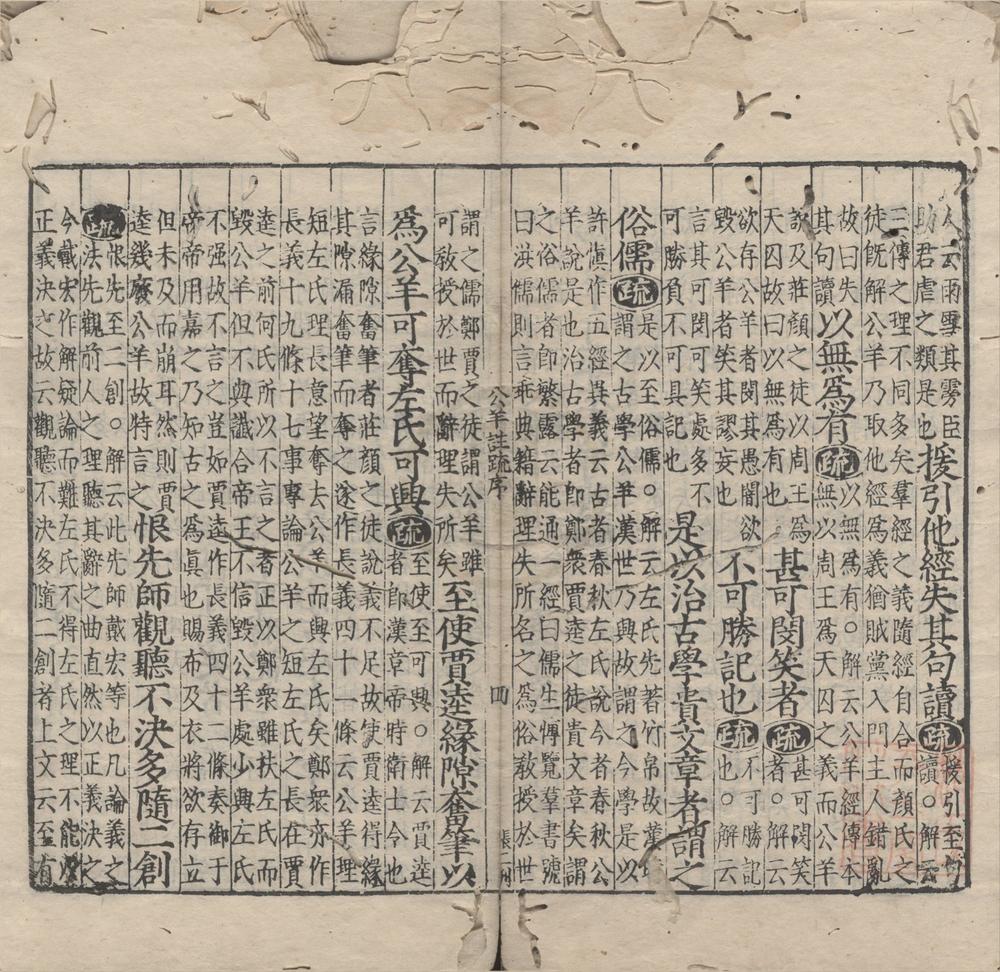 人云雨雪其雱臣
助君虐之類是也
援引他經失其句讀
疏
援引至句
讀。解云
三傳之理不同多矣羣經之義隨經自合而顏氏之
徒旣解公羊乃取他經爲義猶賊黨入門主人錯亂
故曰失
其句讀
以無爲有
疏
以無爲有。解云公羊經傳本
無以周王爲天囚之義而公羊
說及莊顏之徒以周王爲
天囚故曰以無爲有也
甚可閔笑者
疏
甚可閔笑
者。解云
欲存公羊者閔其愚闇欲
毀公羊者笑其謬妄
不可勝記也
疏
不可勝記
也。解云
言其可閔可笑處多不
可勝負不可具記也
是以治古學貴文章者謂之
俗儒
疏
是以至俗儒。解云左氏先著竹帛故漢時
謂之古學公羊漢世乃興故謂之今學是以
許慎作五經異義云古者春秋左氏說今者春秋公
羊說是也治古學者卽鄭衆賈逵之徒貴文章矣謂
之俗儒者卽繁露云能通一經曰儒生博覽羣書號
曰洪儒則言乖典籍辭理失所名之爲俗教授於世
公羊註疏序
四
謂之儒鄭賈之徒謂公羊雖
可敎授於世而辭理失所矣
至使賈逵緣隙奮筆以
爲公羊可奪左氏可興
疏
至使至可興。解云賈逵
者卽漢章帝時衛士令也
言緣隙奮筆者莊顏之徒說義不足故使賈逵得緣
其隙漏奮筆而奪之遂作長義四十一條云公羊理
短左氏理長意望奪去公羊而興左氏矣鄭衆亦作
長義十九條十七事專論公羊之短左氏之長在賈
逵之前何氏所以不言之者正以鄭衆雖扶左氏而
毀公羊但不與讖合帝王不信毀公羊處少興左氏
不强故不言之豈如賈逵作長義四十二條奏御于
帝帝用嘉之乃知古之爲眞也賜布及衣將欲存立
但未及而崩耳然則賈
逵幾廢公羊故特言之
恨先師觀聽不決多隨二創
疏
恨先至二創。解云此先師戴宏等也凡論義之
法先觀前人之理聽其辭之曲直然以正義決之
今戴宏作解疑論而難左氏不得左氏之理不能以
正義決之故云觀聽不決多隨二創者上文云至有